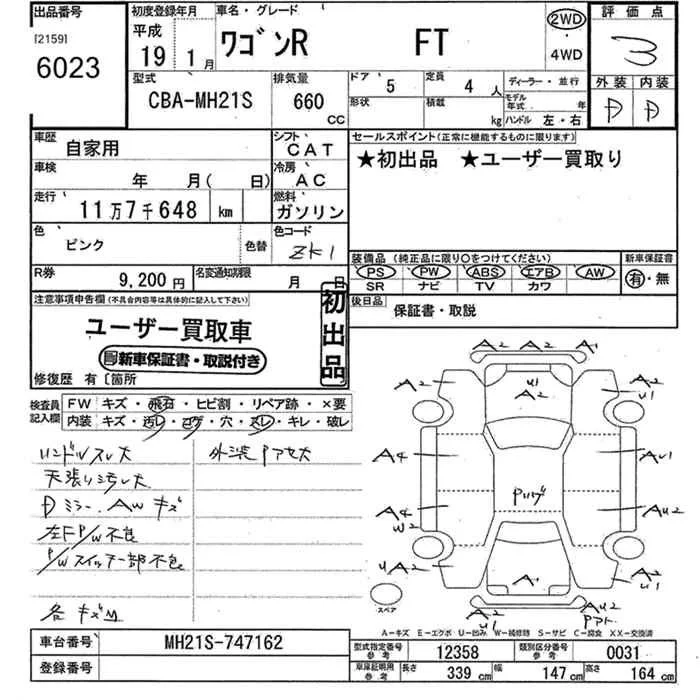 出品番号 初度登録年月 車名・グレード 2WD 評価点
[2159] 平成 ワゴンR FT 3
6023 19 1月 4WD
型式 排気量 ドア 5 定員 4人 ディーラー・並行 外装 内装
CBA-MH21S 660 CC 形状 積載 kg モデル年式 年 D D
ハンドル 左・右
車歴 自家用 シフト CAT セールスポイント(正常に機能するものに限ります)
車検 年 月( 日) 冷房 AC ★初出品 ★ユーザー買取り
走行 11万7千648 km 燃料 ガソリン
色 ピンク 色替 色コード ZK1
装備品 (純正品に限り○をつけてください) 新車保証書
R券 9,200円 名変通知期限 月 日 PS PW ABS エアB AW 有・無
SR ナビ TV カワ
注意事項申告欄(不具合内容等は具体的に記入して下さい) 初出品 後日品 保証書・取説
ユーザー買取車
新車保証書・取説付き
修復歴 有 〔箇所
検査員記入欄 FW キズ・飛石・ヒビ割・リペア跡・×要
内装 キズ・汚レ・コゲ・穴・スレ・キレ・破レ
ハンドルスレ大 外装Pアセ大
天張り汚レ大
Dミラー、AWキズ
左F P/W不良
P/Wスイッチ一部不良
各キズ凹
A2 A2 A1
A2 U1 A2 A2 U1
A4 AU1
Pルーフ
A4 W2 AU2
UA2 A1 U1
スペア A2 U1 AU2 Pアト
A-キズ E-エクボ U-凹み W-補修跡 S-サビ C-腐食 XX-交換済
車台番号 MH21S-747162 型式指定番号 参考 12358 類別区分番号 参考 0031
登録番号 車庫証明用 参考 長さ 339 cm 幅 147 cm 高さ 164 cm